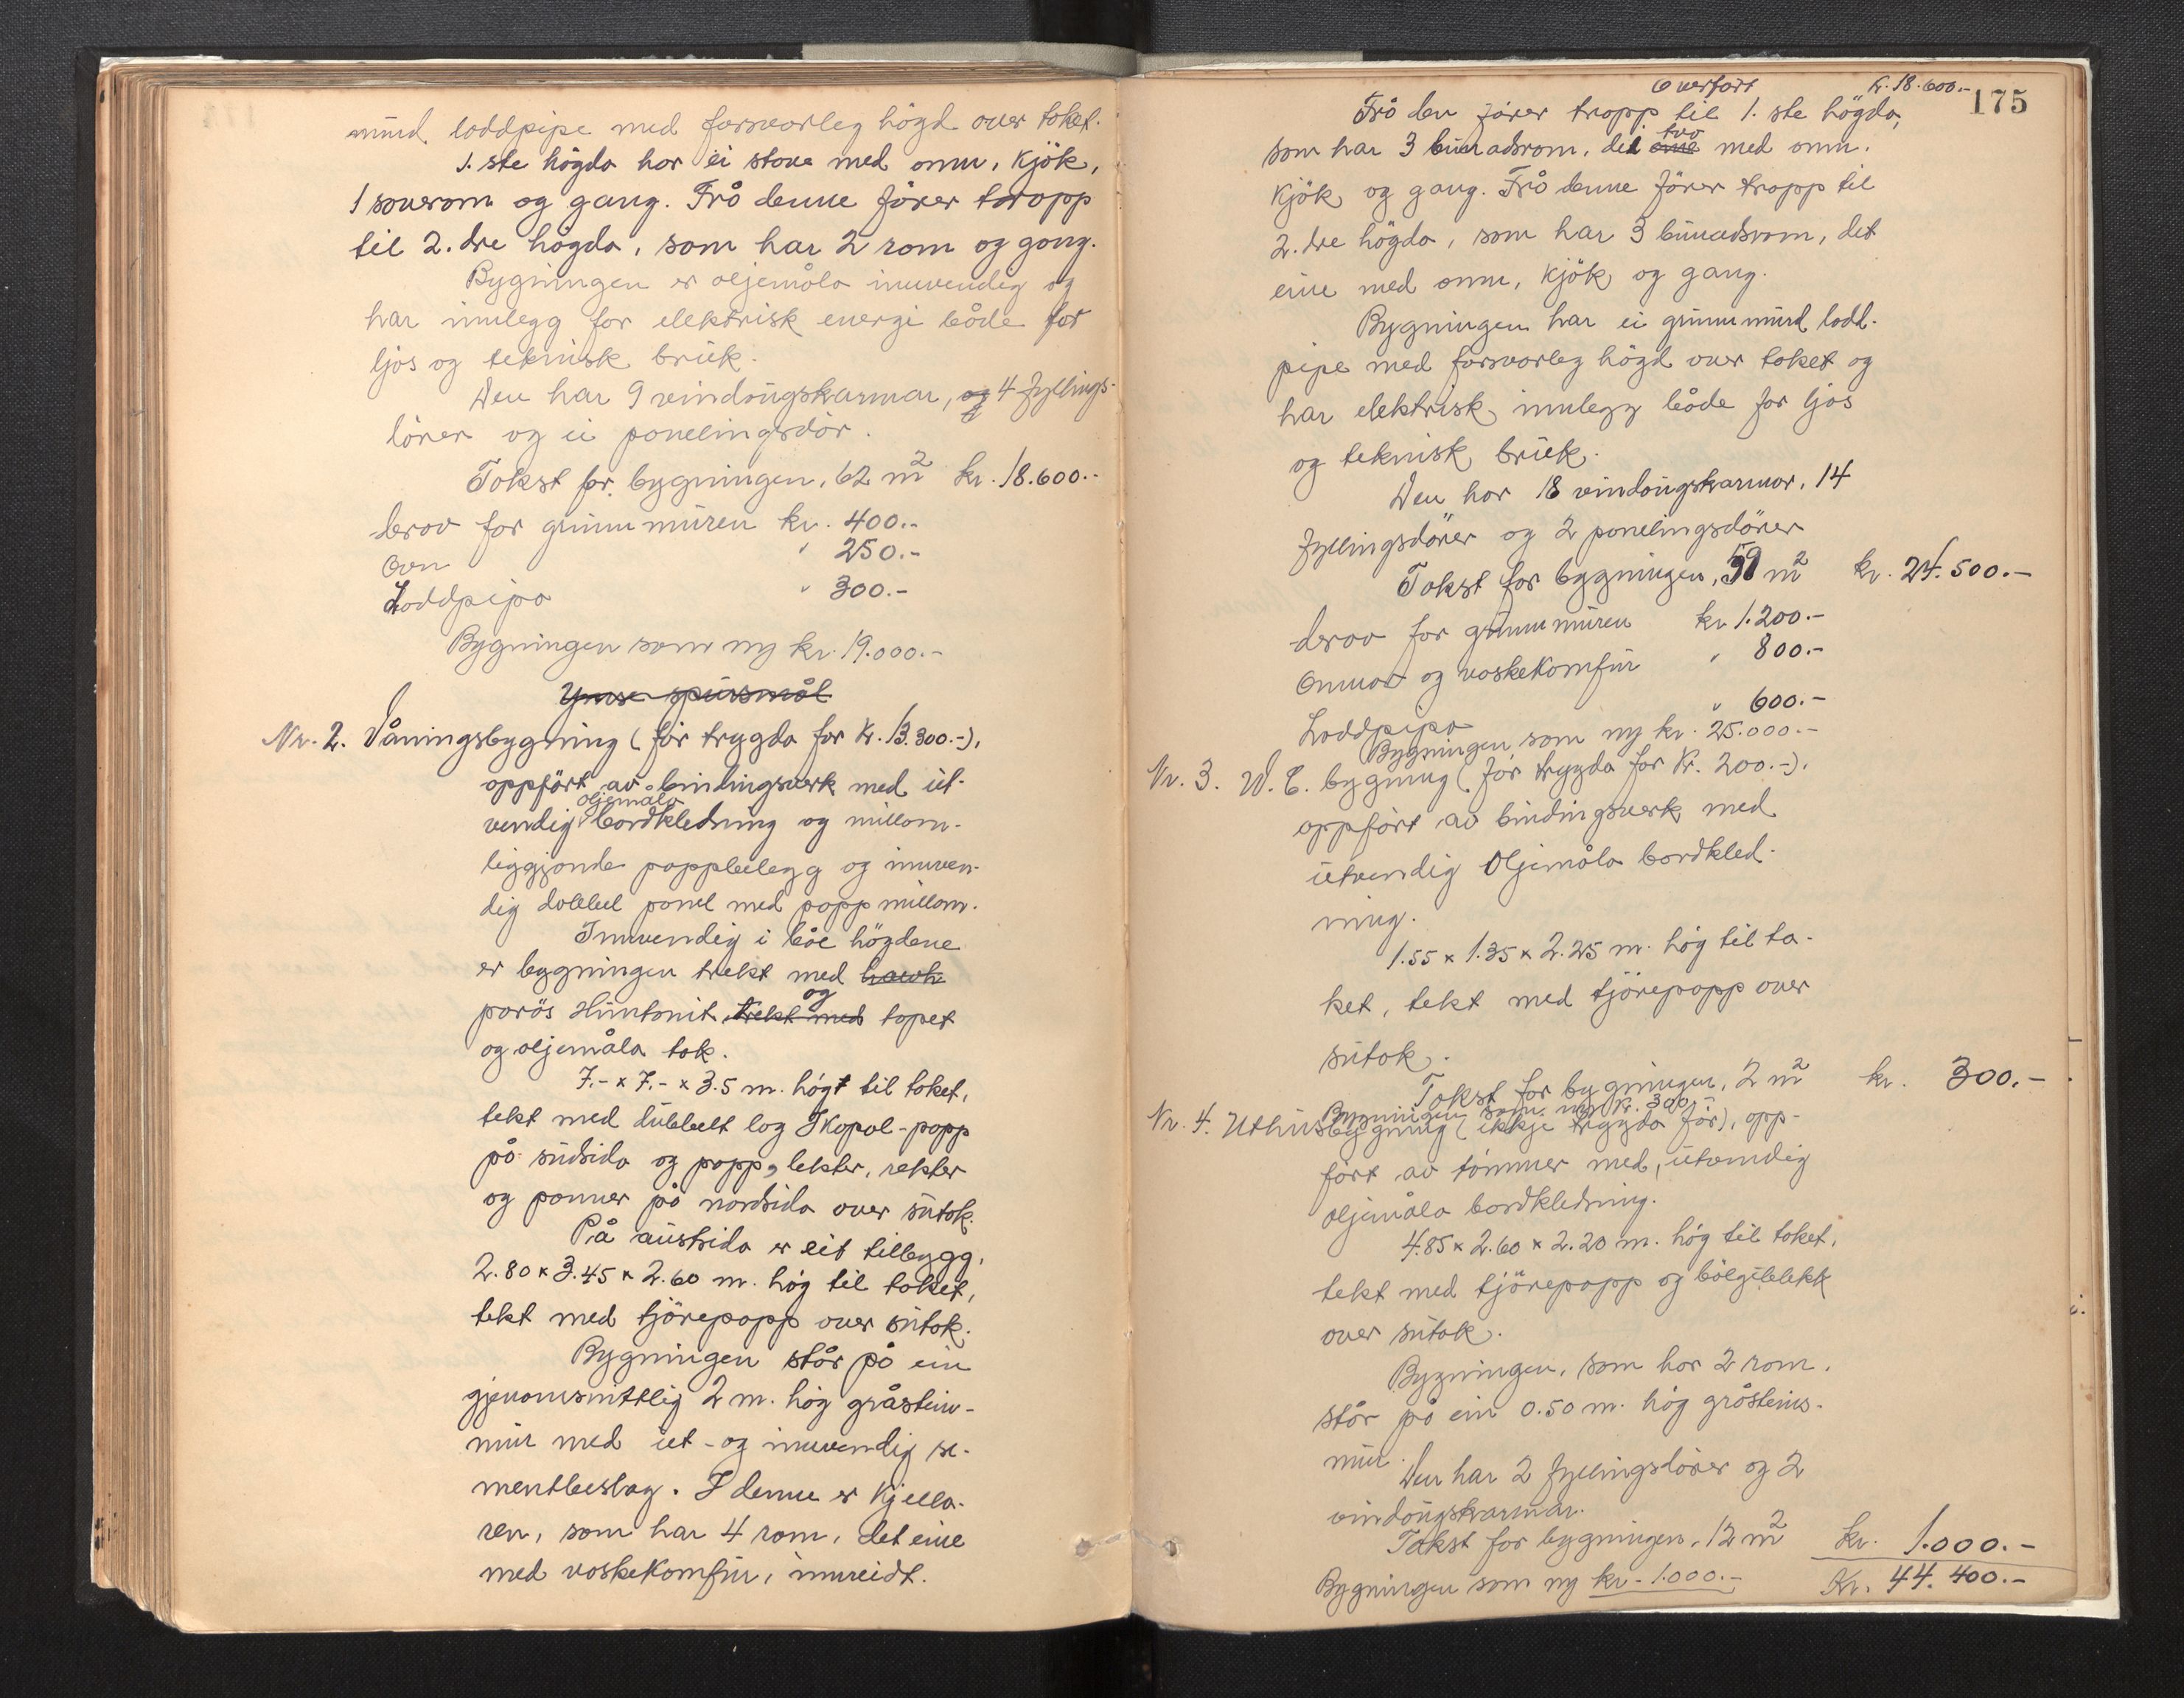 murd loddpipe med forsvorleg högd over toket.
1. ste högda hor ei stove med omn, kjök,
1 soverom og gang. Frå denne förer tropp
til 2. dre högda, som har 2 rom og gong.
Bygningen er oljemåla innvendig og
har innlegg for elektrisk energi både for
ljos og teknisk bruk.
Den har 9 vindaugskarmar, og 4 fyllings-
dörer og ei panelingsdör.
Tokst for bygningen, 62 m² kr. 18.600.-
derov for grunnmuren kr. 400.-
Ovn " 250.-
Loddpipo " 300.-
Bygningen som ny kr. 19.000.-
Ymse spursmål
Nr. 2. Våningsbygning (för trygda for kr. 13.300.-),
oppfört av bindingsverk med ut-
oljemåla
vendig bordkledning og millom-
liggjande pappbelegg og innven-
dig dobbel panel med papp millom.
Innvendig i båe högdene
er bygningen trekt med hawh
og
porös Huntonit trekt med tapet
og oljemåla tak.
7.- x 7.- x 3.5 m. högt til toket,
tekt med dubbelt lag Ikopal-papp
på sudsida og papp, lekter, rekter
og panner på nordsida over sutok.
På austsida er eit tilbygg,
2.80 x 3.45 x 2.60 m. hög til toket,
tekt med tjörepapp over sutok.
Bygningen står på ein
gjenomsnittlig 2 m. hög gråstein-
mur med ut- og innvendig se-
mentbeslag. I denne er kjella-
ren, som har 4 rom, det eine
med voskekomfur, innreidt.
175
Overfört kr. 18.600.-
Frå den förer tropp til 1. ste högda,
tvo
som har 3 bunadsrom, dei eine med omn,
kjök og gang. Frå denne förer tropp til
2. dre högda, som har 3 bunadsrom, det
eine med omn, kjök og gang.
Bygningen har ei grunnmurd lodd-
pipe med forsvorleg högd over toket og
har elektrisk innlegg både for ljos
og teknisk bruk.
Den hor 18 vindaugskarmar, 14
fyllingsdörer og 2 panelingsdörer
Tokst for bygningen, 59 m² kr. 24.500.-
derov for grunnmuren kr 1.200.-
Omnar og voskekomfur " 800.-
Loddpipo " 600.-
Bygningen som ny kr. 25.000.-
Nr. 3. W. C. bygning (för trygda for kr. 200.-),
oppfört av bindingsverk med
utvendig oljemåla bordkled-
ning.
1.55 x 1.35 x 2.25 m. hög til ta-
ket, tekt med tjörepapp over
sutok.
Tokst for bygningen, 2 m² kr. 300.-
Bygningen som ny kr. 300.-
Nr. 4. Uthusbygning (ikkje trygda för), opp-
fört av tömmer med, utvendig
oljemåla bordkledning.
4.85 x 2.60 x 2.20 m. hög til toket,
tekt med tjörepapp og bölgeblekk
over sutok.
Bygningen, som hor 2 rom,
står på ein 0.50 m. hög gråsteins-
mur.
Den har 2 fyllingsdörer og 2
vindaugskarmar.
Takst for bygningen, 12 m² kr. 1.000.-
Bygningen som ny kr. 1.000.- Kr. 44.400.-